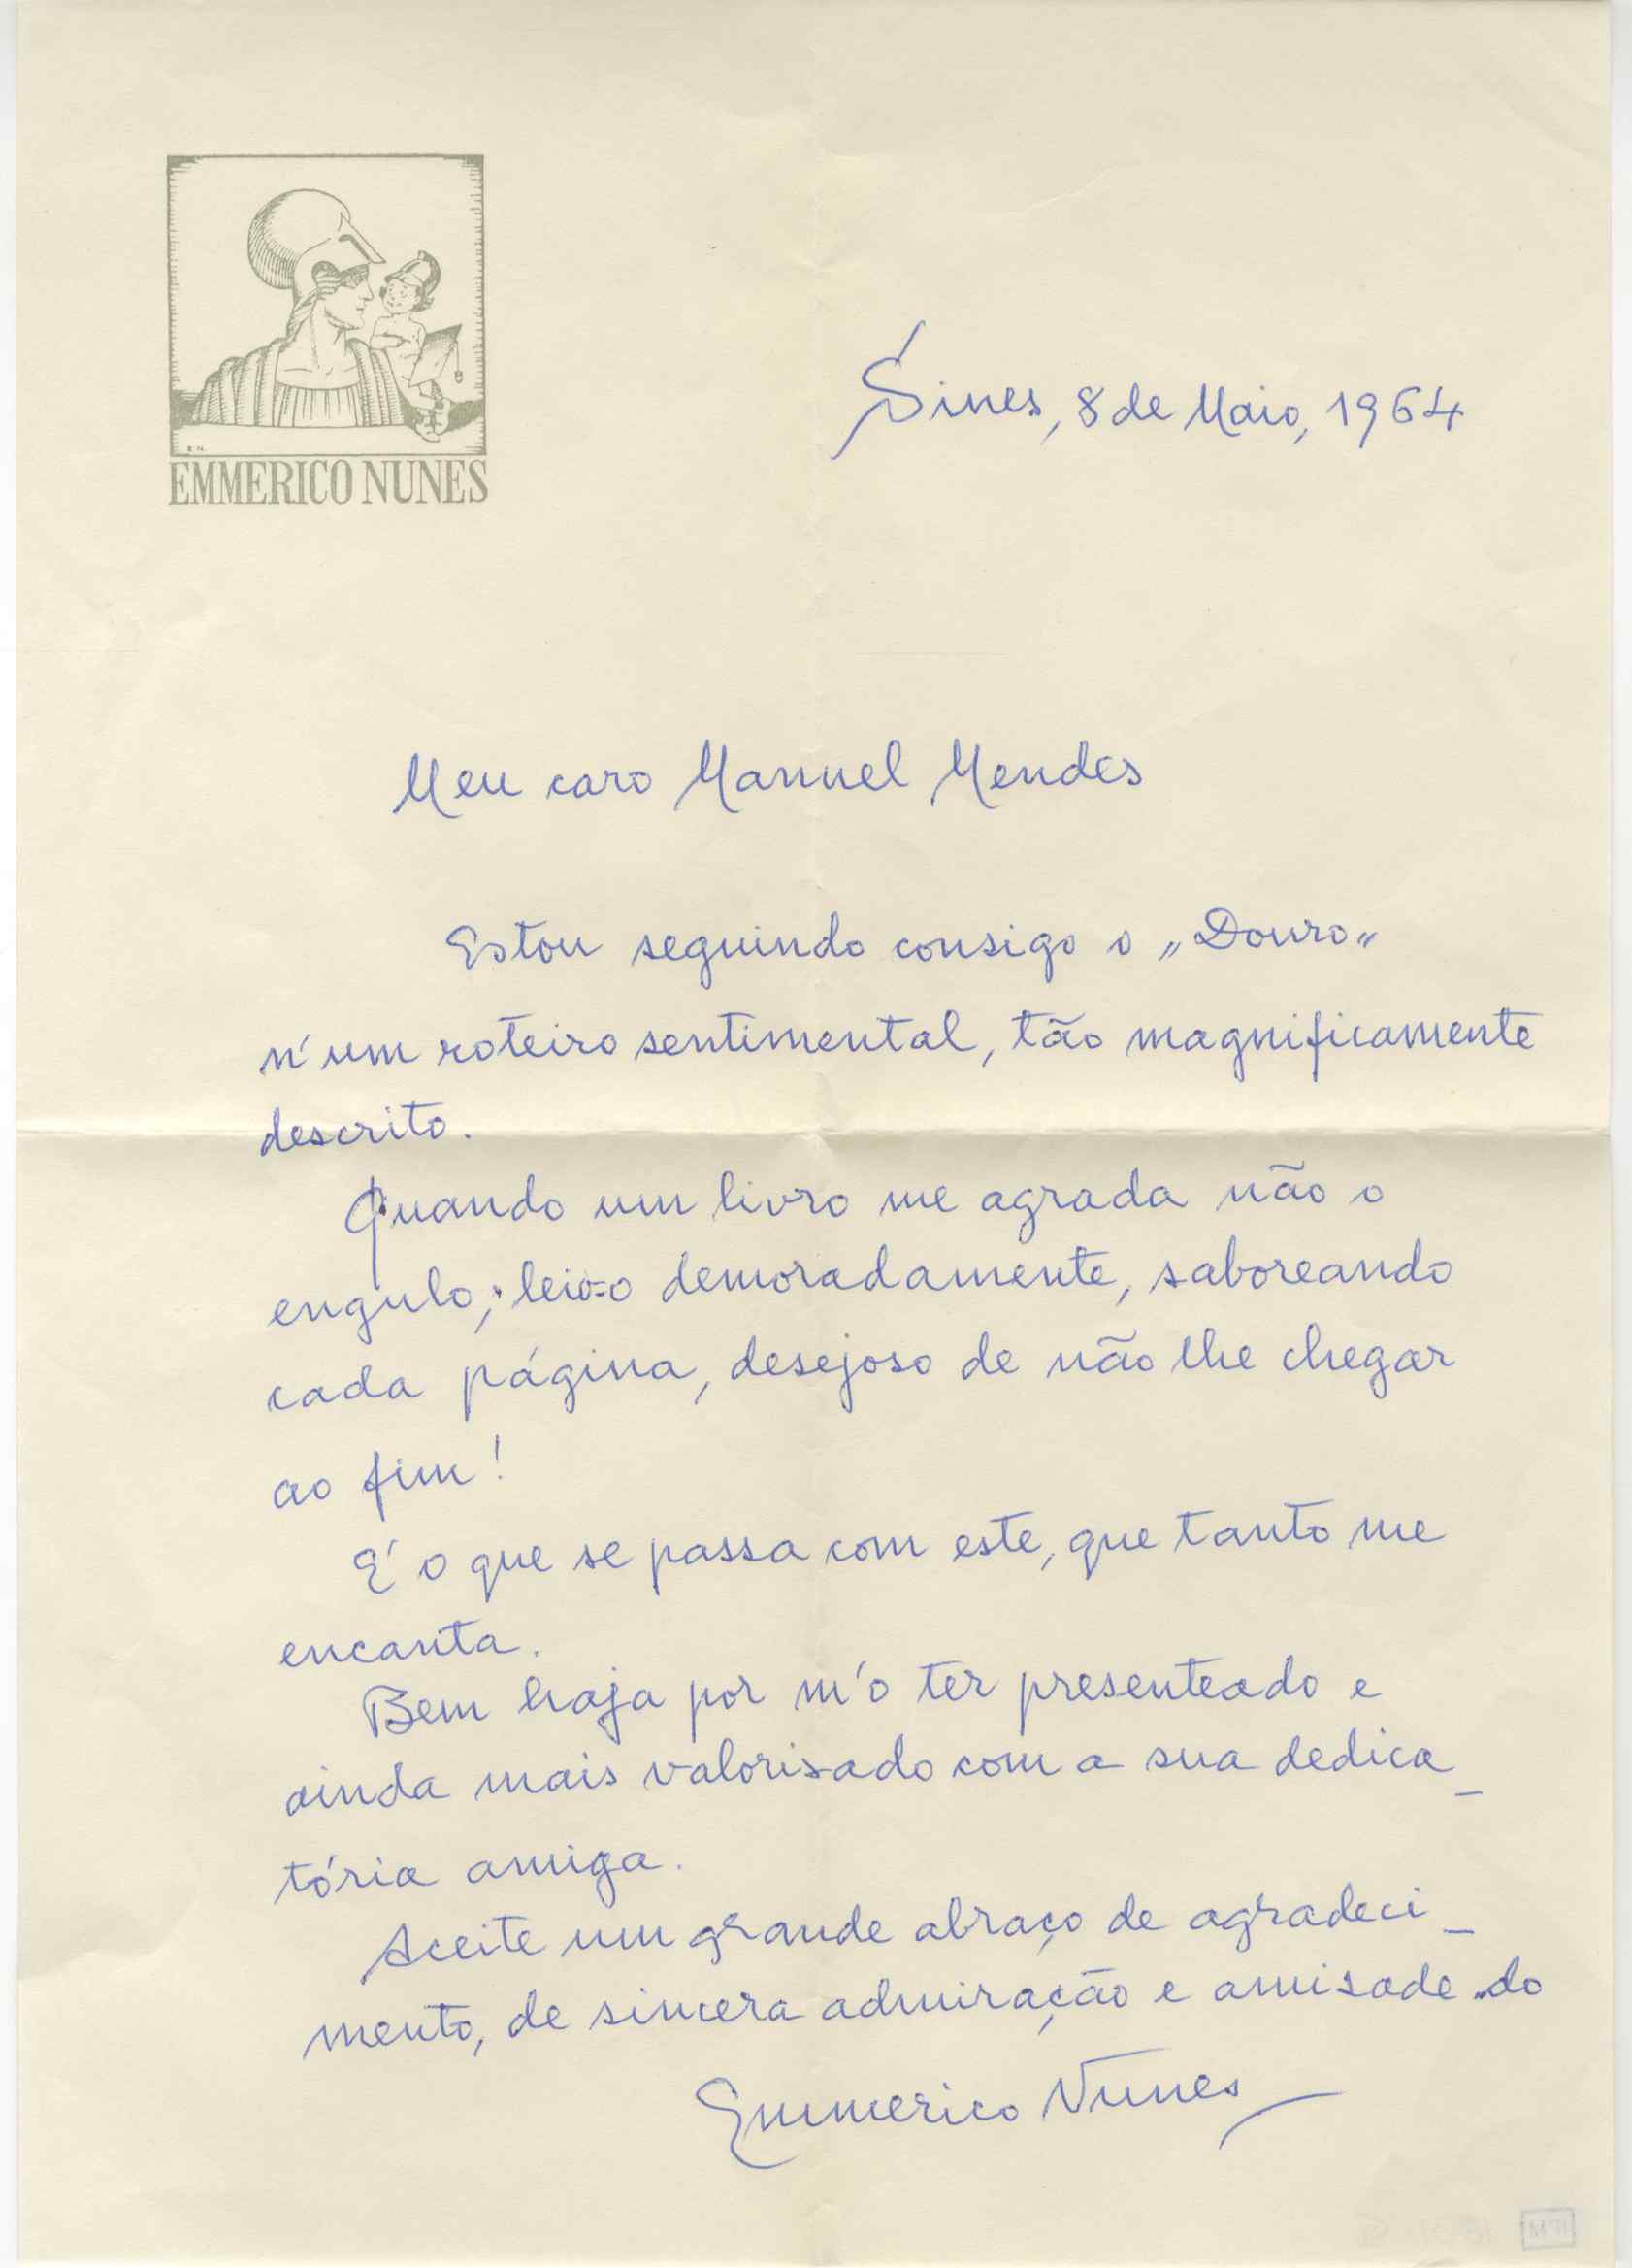 E N.
EMMERICO NUNES
Sines, 8 de Maio, 1964
Meu caro Manuel Mendes
Estou seguindo consigo o „Douro“
n'um roteiro sentimental, tão magnificamente
descrito.
Quando um livro me agrada não o
engulo; leio-o demoradamente, saboreando
cada página, desejoso de não lhe chegar
ao fim!
E' o que se passa com este, que tanto me
encanta.
Bem haja por m'o ter presenteado e
ainda mais valorisado com a sua dedica_
tória amiga.
Aceite um grande abraço de agradeci_
mento, de sincera admiração e amisade do
Emmerico Nunes